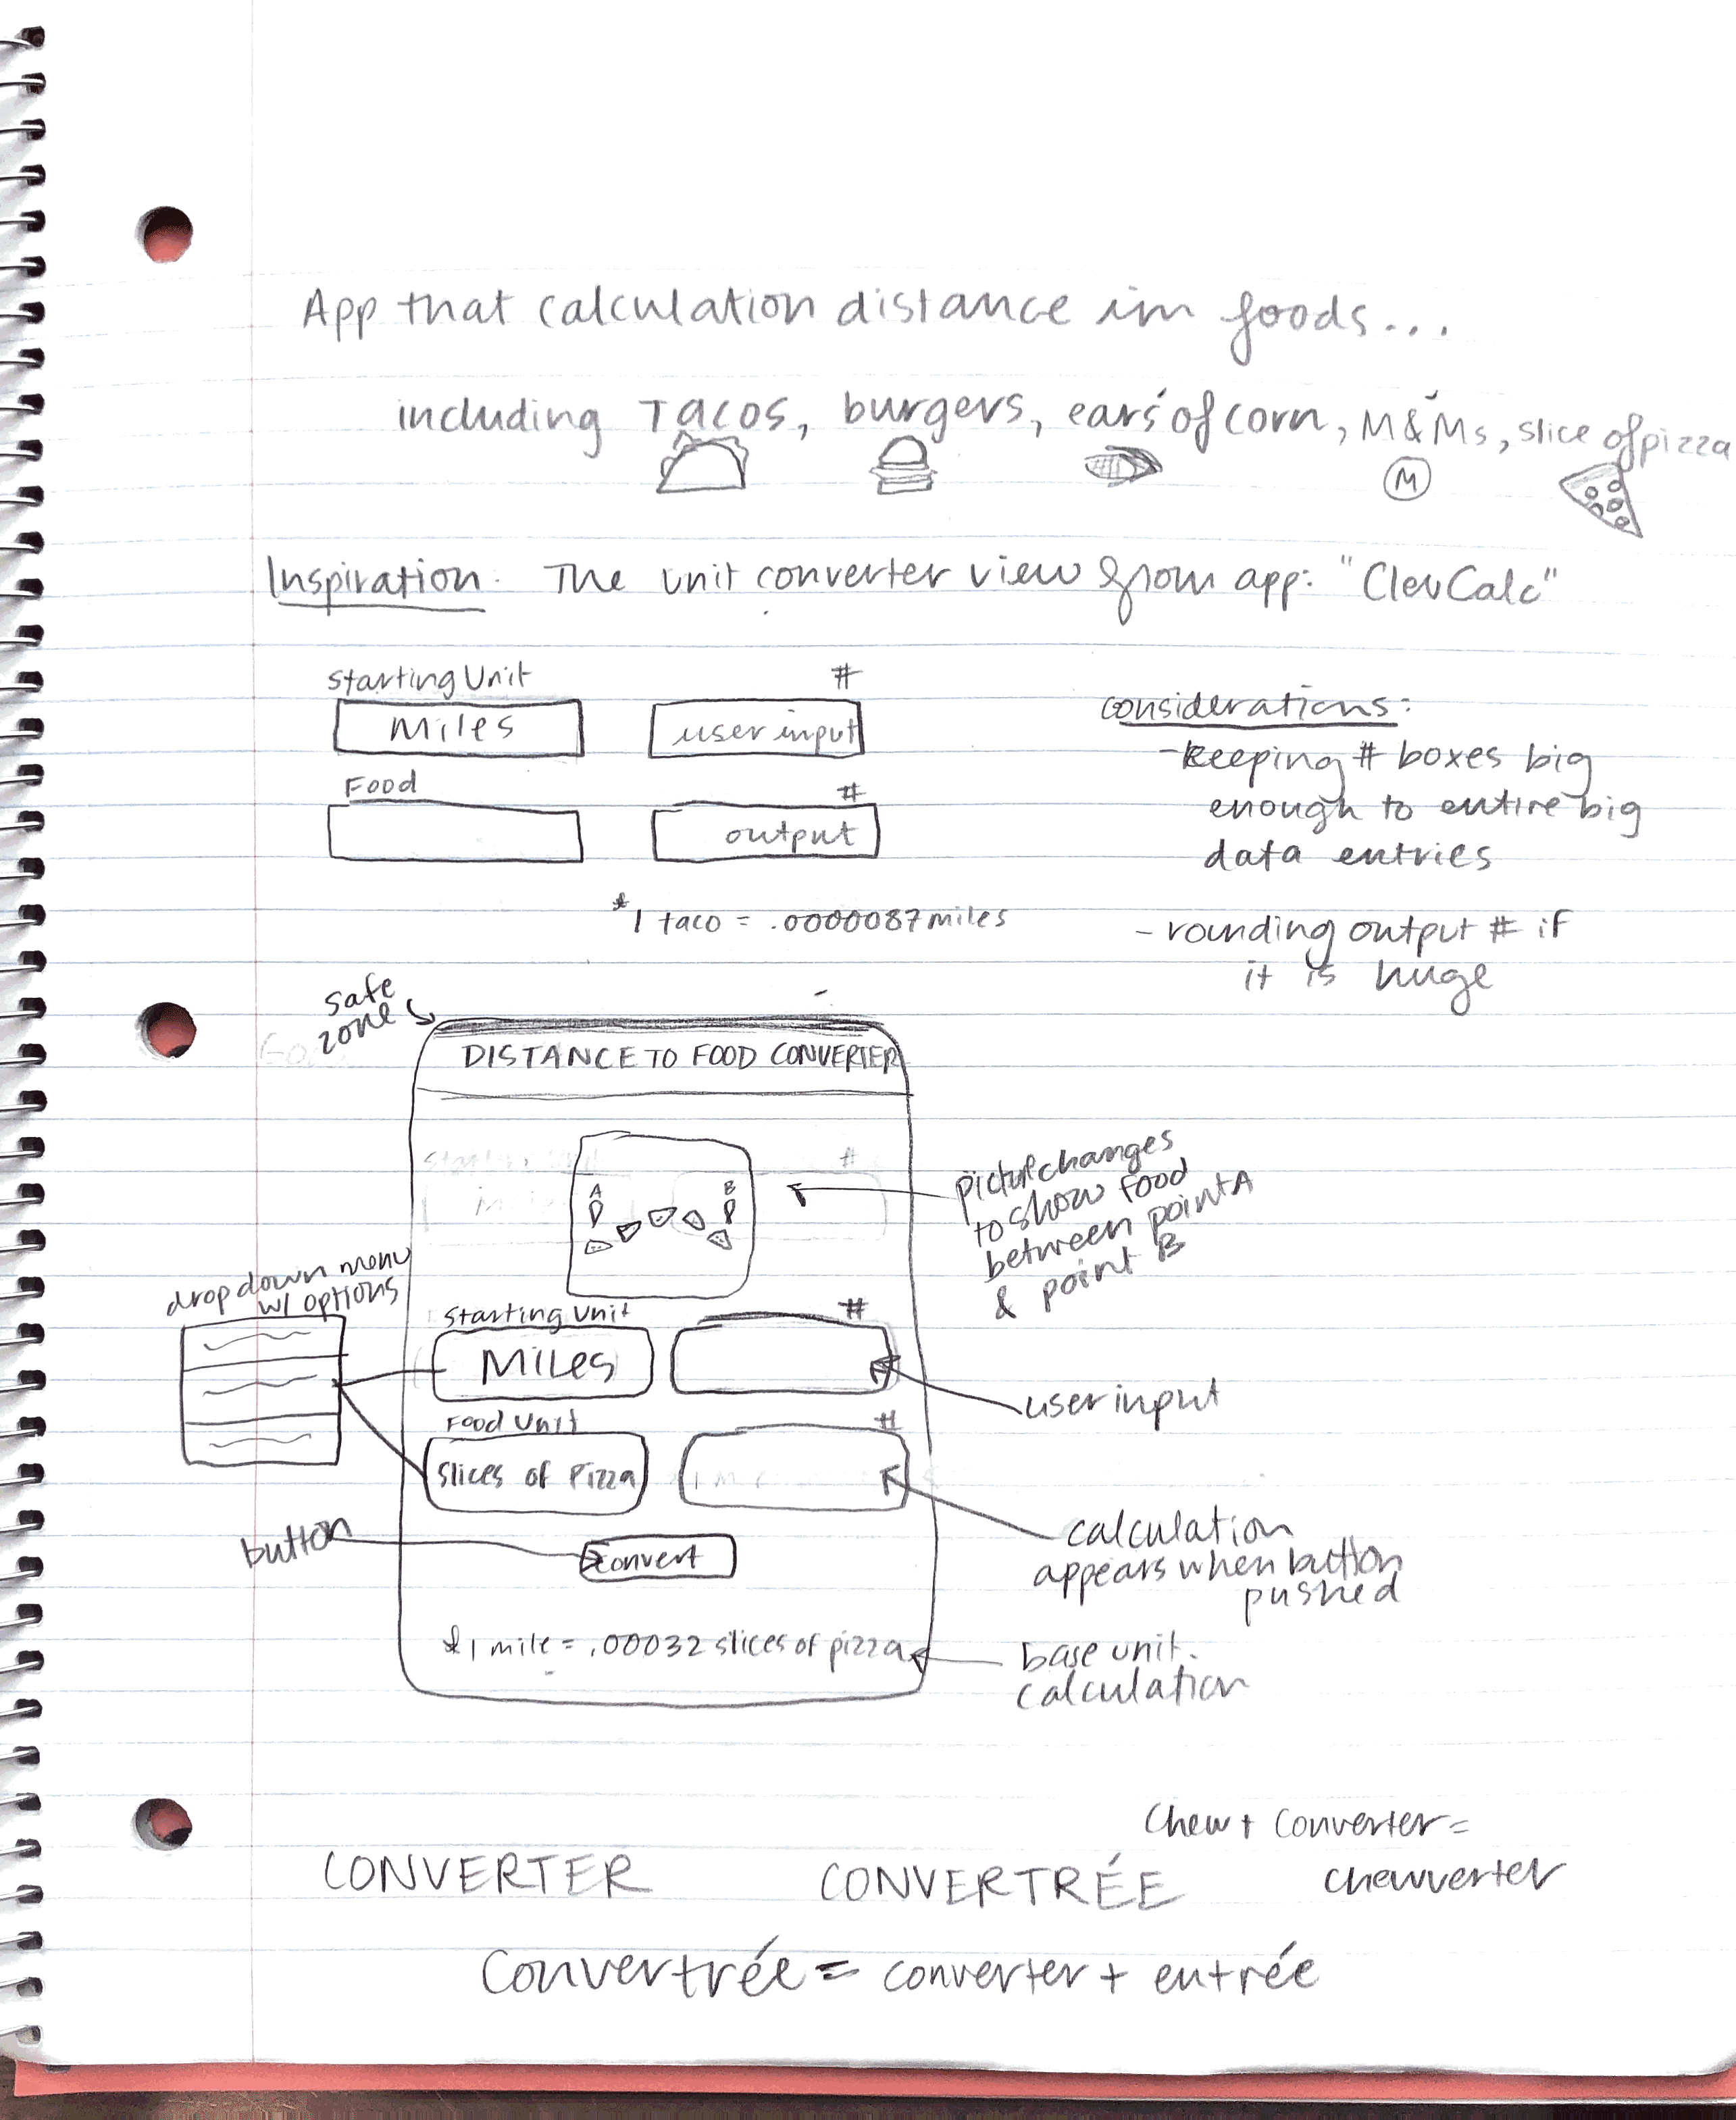 App that calculation distance in foods...
including Tacos, burgers, ears of corn, M&Ms, slice of pizza
M
Inspiration: The unit converter view from app: "ClevCalc"
Starting Unit #
Miles user input
Food #
output
*1 taco = .0000087 miles
considerations:
-keeping # boxes big
enough to entire big
data entries
- rounding output # if
it is huge
safe
zone
DISTANCE TO FOOD CONVERTER
Starting Unit #
A B
picture changes
to show food
between point A
& point B
drop down menu
w/ options
Starting Unit #
Miles
user input
Food Unit #
Slices of Pizza
calculation
appears when button
pushed
button
Convert
*1 mile = .00032 slices of pizza
base unit
calculation
Chew + Converter =
chewverter
CONVERTER CONVERTRÉE
Convertrée = converter + entrée